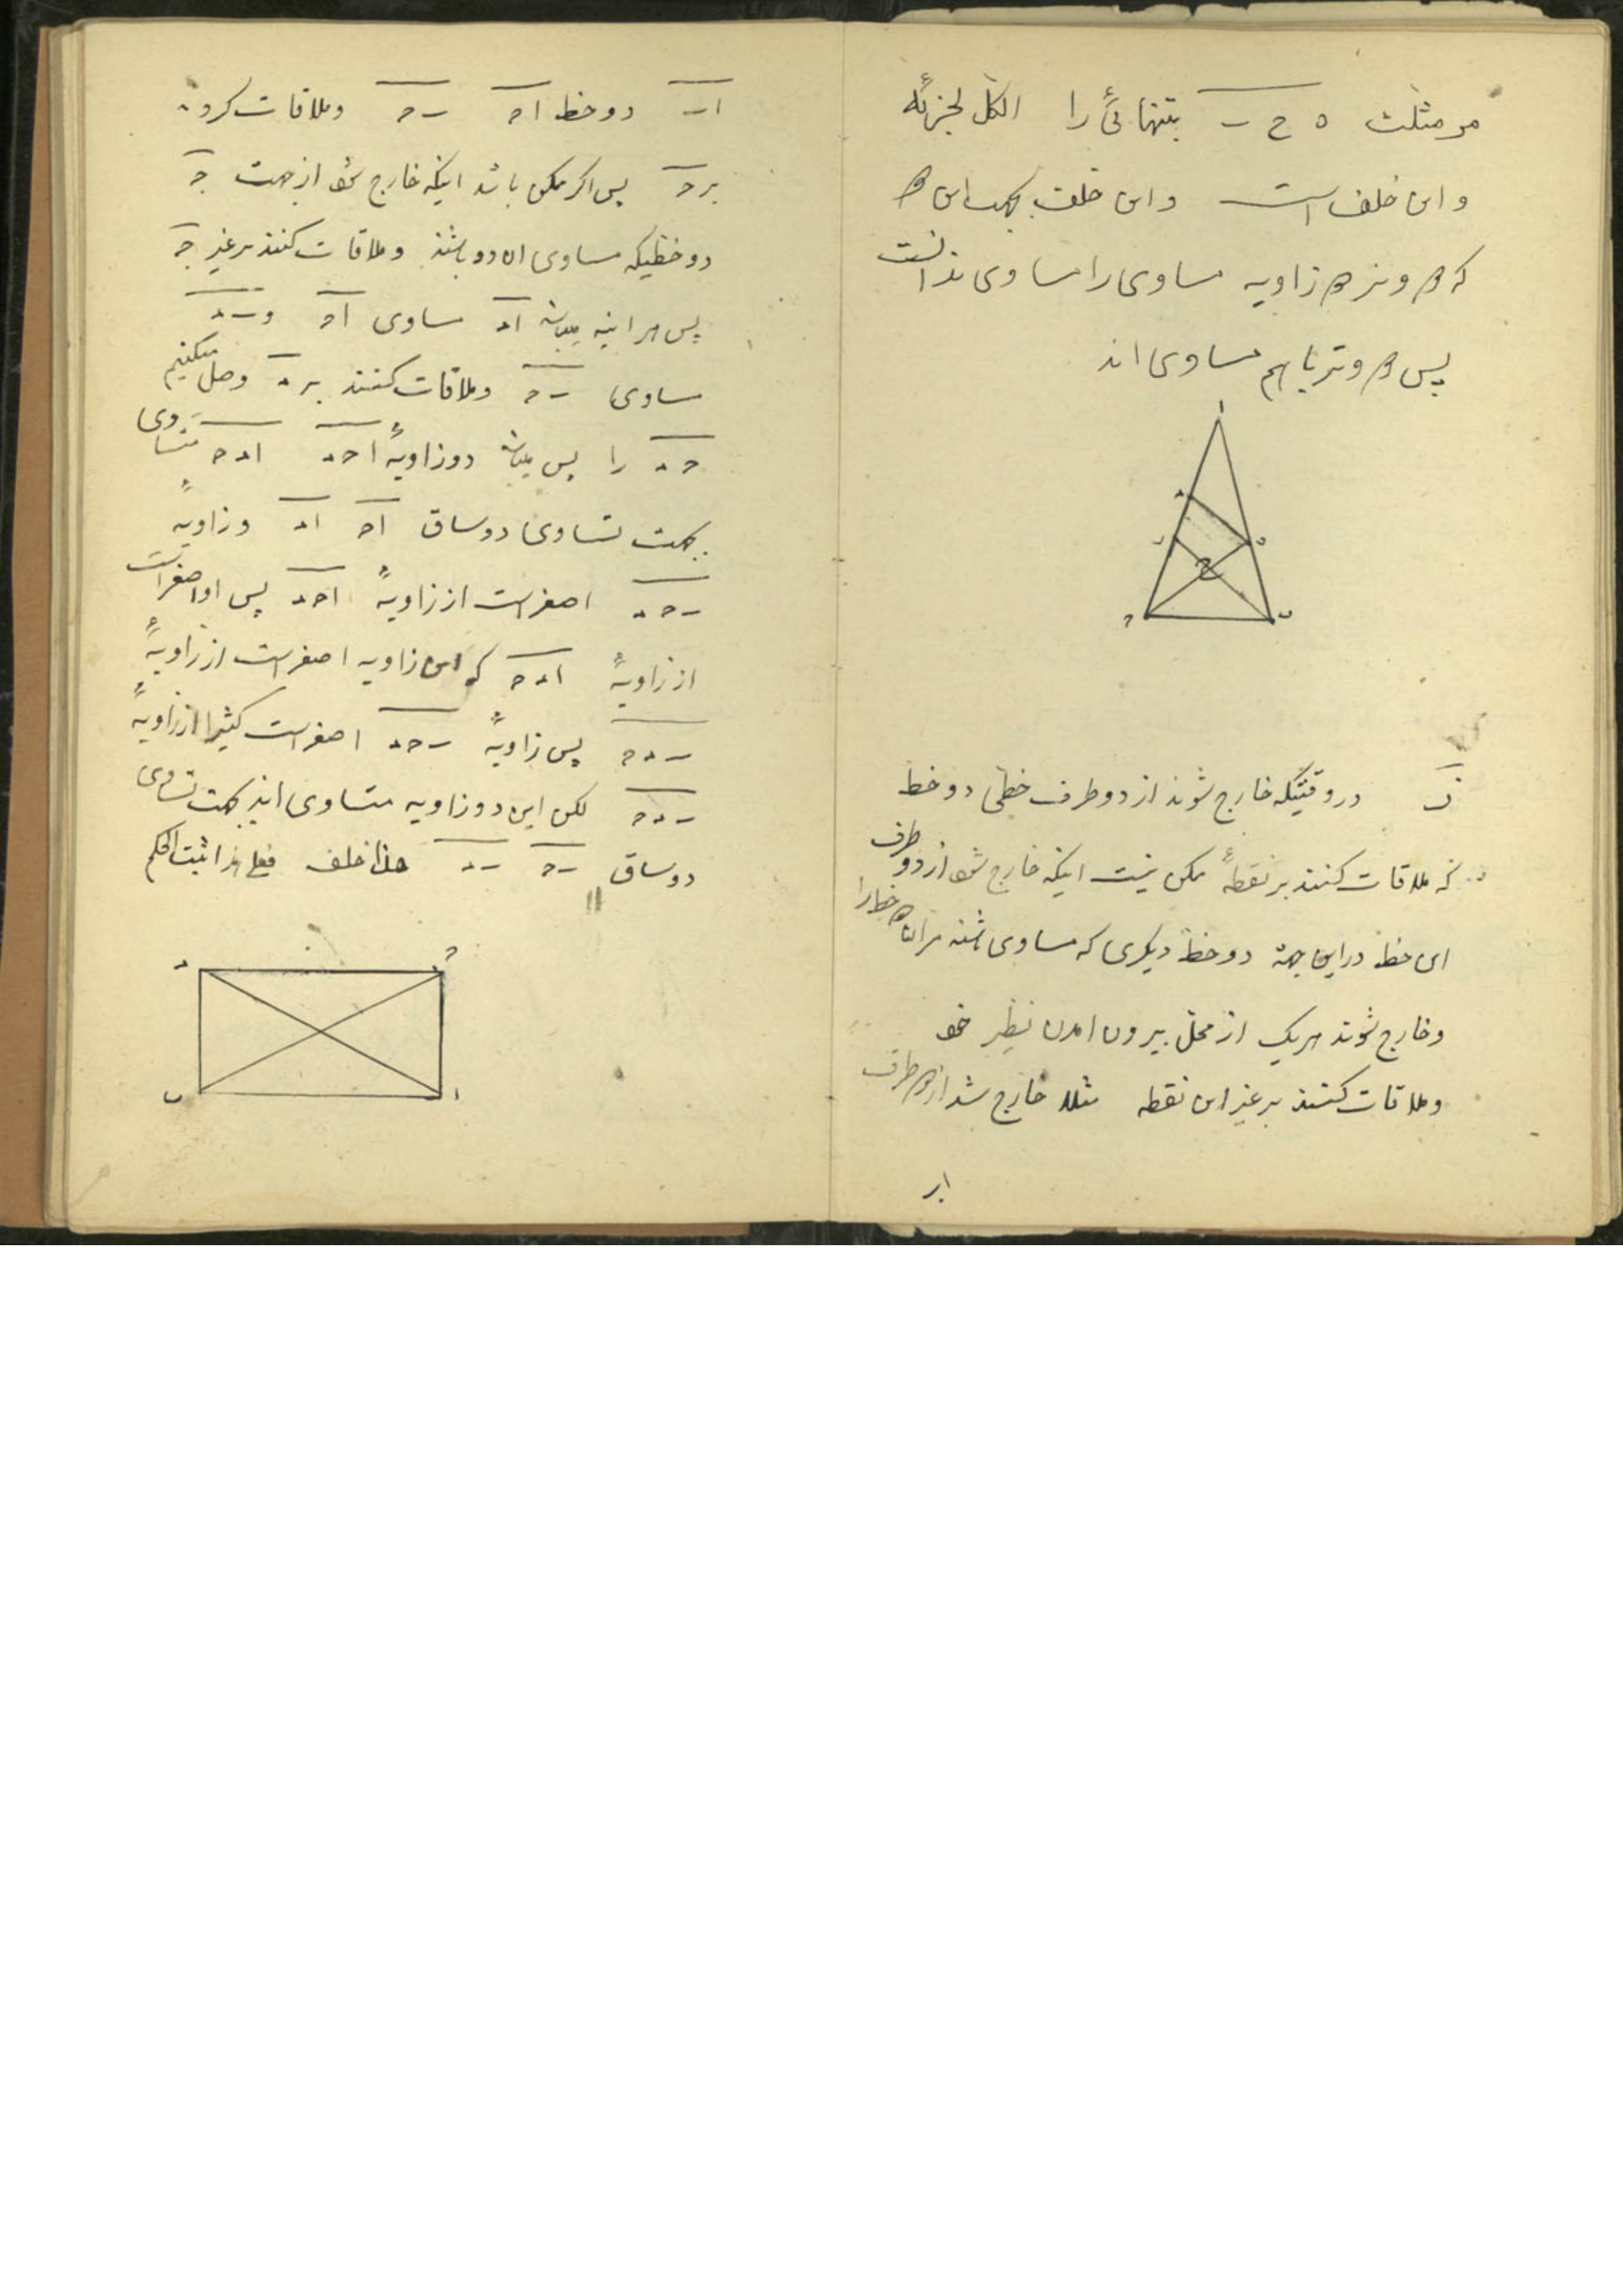 مر مثلث ه ح ب بتنهائی را الکل لجزئه
و این خلف است و این خلف بجهت این
که دو وتر دو زاویه مساوی را مساوی ندانست
پس دو وتر با هم مساوی اند
ا
د
ب ه
ح
ج ب
ز در وقتیکه خارج شوند از دو طرف خطی دو خط
که ملاقات کنند بر نقطهٔ ممکن نیست اینکه خارج شود از دو طرف
این خط در این جهة دو خط دیگری که مساوی باشند مر آن دو خط را
و خارج شوند هریک از محل بیرون امدن نظیر خود
و ملاقات کنند بر غیر این نقطه مثلا خارج شد از دو طرف
اب
اب دو خط اح ب ح و ملاقات کردند
بر ح پس اگر ممکن باشد اینکه خارج شود از جهت ح
دو خطیکه مساوی ان دو باشند و ملاقات کنند بر غیر ح
پس هراینه میباشد اد مساوی اح و ب د
مساوی ب ح و ملاقات کنند بر د وصل میکنیم
ح د را پس میباشد دو زاویهٔ ا ح د ا د ح متساوی
بجهت تساوی دو ساق اح اد و زاویهٔ
ب ح د اصغر است از زاویهٔ ا ح د پس او اصغر است
از زاویهٔ ا د ح که این زاویه اصغر است از زاویهٔ
ب د ح پس زاویهٔ ب ح د اصغر است کثیرا از زاویهٔ
ب د ح لکن این دو زاویه متساوی اند بجهت تساوی
دو ساق ب ح ب د هذا خلف فعلی هذا ثبت الحکم
د ح
ب ا